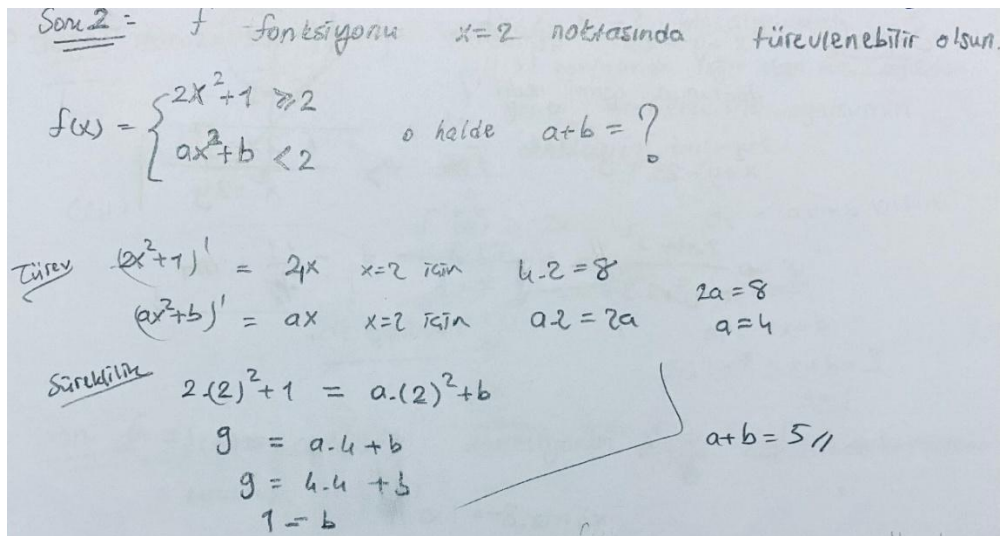 Soru 2 = f fonksiyonu x=2 noktasında türevlenebilir olsun.
f(x) = { 2x²+1 ≥2
ax²+b <2
o halde a+b = ?
Türev (2x²+1)' = 4x x=2 için 4.2=8
(ax²+b)' = ax x=2 için a.2 = 2a
2a=8
a=4
Süreklilik 2.(2)²+1 = a.(2)²+b
9 = a.4+b
9 = 4.4 +b
1 = b
a+b = 5 //